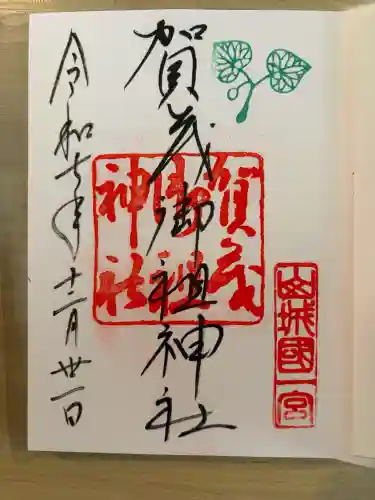 山城國一宮
賀茂御祖神社
賀茂御祖神社
令和七年十二月廿一日